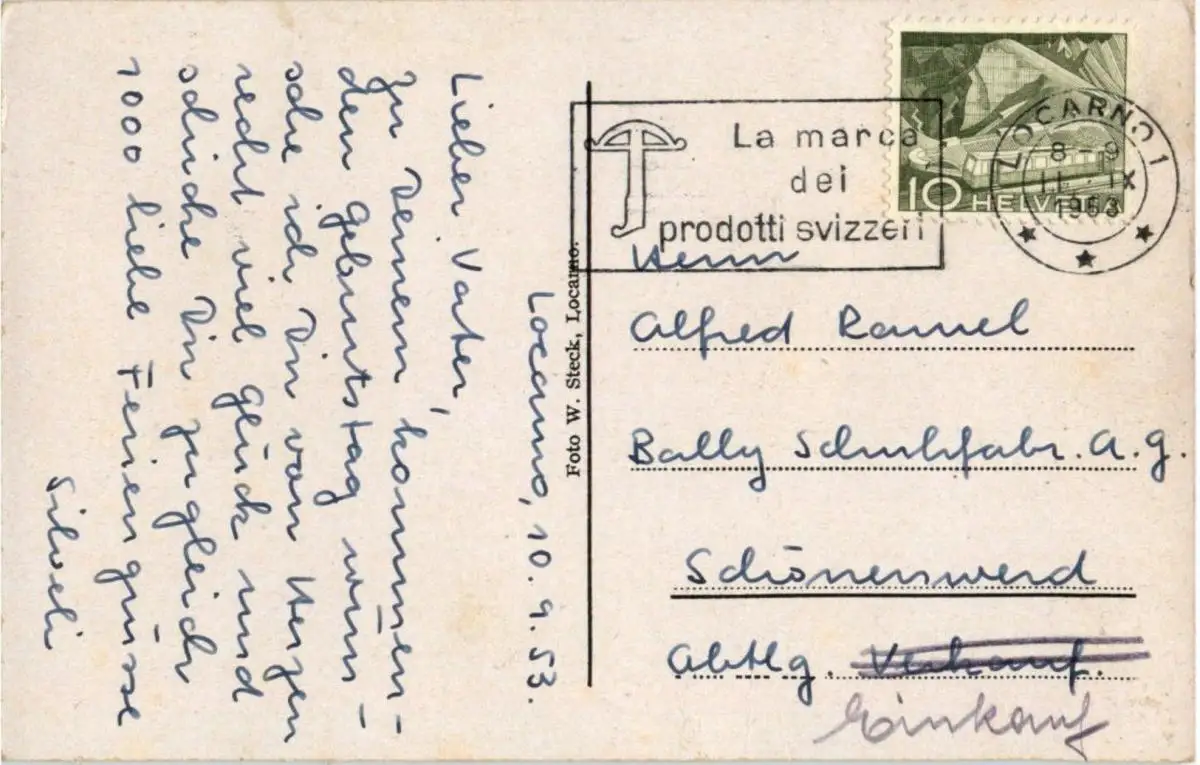 Locarno, 10. 9. 53.
Lieber Vater,
Zu Deinem kommen-
den Geburtstag wün-
sche ich Dir von Herzen
recht viel Glück und
schicke Dir zugleich
1000 liebe Feriengrüsse
Silveli
Foto W. Steck, Locarno.
La marca
dei
prodotti svizzeri
10 HELVETIA
LOCARNO 1
8 – 9
11. IX
1953
Herrn
Alfred Ramel
Bally Schuhfabr. A. G.
Schönenwerd
Abtlg. Verkauf.
Einkauf